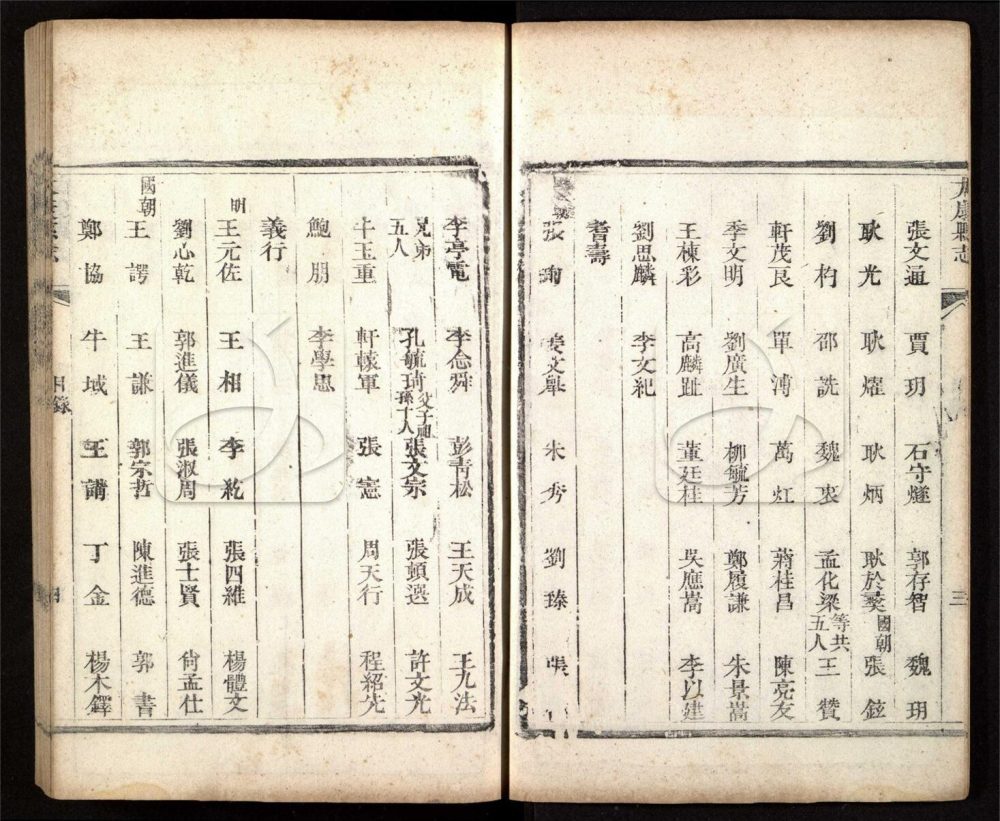 太康縣志
三
張文通 賈玥 石守燧 郭存智 魏玥
耿光 耿燿 耿炳 耿於𡙡 國朝 張鉉
劉杓 邵詵 魏裒 孟化梁 等共五人 王贊
軒茂艮 單溥 萬灴 蔣桂昌 陳亮友
季文明 劉廣生 柳毓芳 鄭履謙 朱景嵩
王棟彩 高麟趾 董廷桂 吳應嵩 李以建
劉思麟 李文紀
耆壽
張 朱秀 劉瑧 張
李亭電 李念舜 彭青松 王天成 王九法
兄弟五人 孔毓琦 父子祖孫十人 張文宗 張頓選 許文光
牛玉重 軒轅軍 張憲 周天行 程紹光
鮑朋 李學思
義行
明 王元佐 王相 李乾 張四維 楊體文
劉心乾 郭進儀 張淑周 張士賢 尙孟仕
國朝 王諤 王謙 郭宗哲 陳進德 郭書
鄭協 牛域 王講 丁金 楊木鐸
目錄